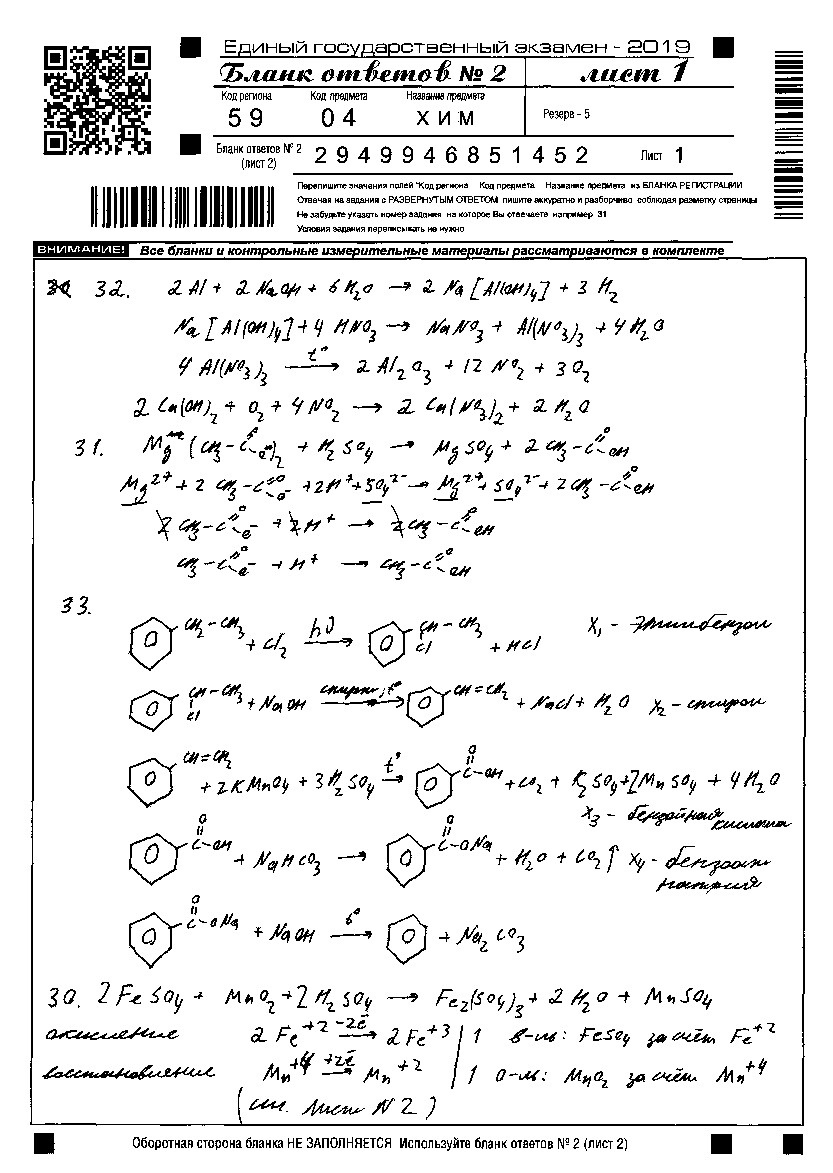 Единый государственный экзамен - 2019
Бланк ответов № 2 лист 1
Код региона Код предмета Название предмета
59 04 ХИМ Резерв - 5
Бланк ответов № 2 (лист 2) 2949946851452 Лист 1
Перепишите значения полей "Код региона Код предмета Название предмета из БЛАНКА РЕГИСТРАЦИИ
Отвечая на задания с РАЗВЕРНУТЫМ ОТВЕТОМ пишите аккуратно и разборчиво соблюдая разметку страницы
Не забудьте указать номер задания на которое Вы отвечаете например 31
Условия задания переписывать не нужно
ВНИМАНИЕ! Все бланки и контрольные измерительные материалы рассматриваются в комплекте
32. 2Al + 2NaOH + 6H₂O → 2Na[Al(OH)₄] + 3H₂
Na[Al(OH)₄] + 4HNO₃ → NaNO₃ + Al(NO₃)₃ + 4H₂O
4Al(NO₃)₃ t°→ 2Al₂O₃ + 12NO₂ + 3O₂
2Cu(OH)₂ + O₂ + 4NO₂ → 2Cu(NO₃)₂ + 2H₂O
31. Mg(CH₃-C=O-O)₂ + H₂SO₄ → MgSO₄ + 2CH₃-C=O-OH
Mg²⁺ + 2CH₃-C=O-O⁻ + 2H⁺ + SO₄²⁻ → Mg²⁺ + SO₄²⁻ + 2CH₃-C=O-OH
2CH₃-C=O-O⁻ + 2H⁺ → 2CH₃-C=O-OH
CH₃-C=O-O⁻ + H⁺ → CH₃-C=O-OH
33.
CH₂-CH₃ + Cl₂ hν→ CH-CH₃ Cl + HCl X₁ - этилбензол
CH-CH₃ Cl + NaOH спирт, t°→ CH=CH₂ + NaCl + H₂O X₂ - стирол
CH=CH₂ + 2KMnO₄ + 3H₂SO₄ t°→ O=C-OH + CO₂ + K₂SO₄ + 2MnSO₄ + 4H₂O
X₃ - бензойная кислота
O=C-OH + NaHCO₃ → O=C-ONa + H₂O + CO₂↑ X₄ - бензоат натрия
O=C-ONa + NaOH t°→ + Na₂CO₃
30. 2FeSO₄ + MnO₂ + 2H₂SO₄ → Fe₂(SO₄)₃ + 2H₂O + MnSO₄
окисление 2Fe⁺² -2ē→ 2Fe⁺³ | 1 в-ль: FeSO₄ за счёт Fe⁺²
восстановление Mn⁺⁴ +2ē→ Mn⁺² | 1 о-ль: MnO₂ за счёт Mn⁺⁴
(см. Лист N2)
Оборотная сторона бланка НЕ ЗАПОЛНЯЕТСЯ Используйте бланк ответов № 2 (лист 2)